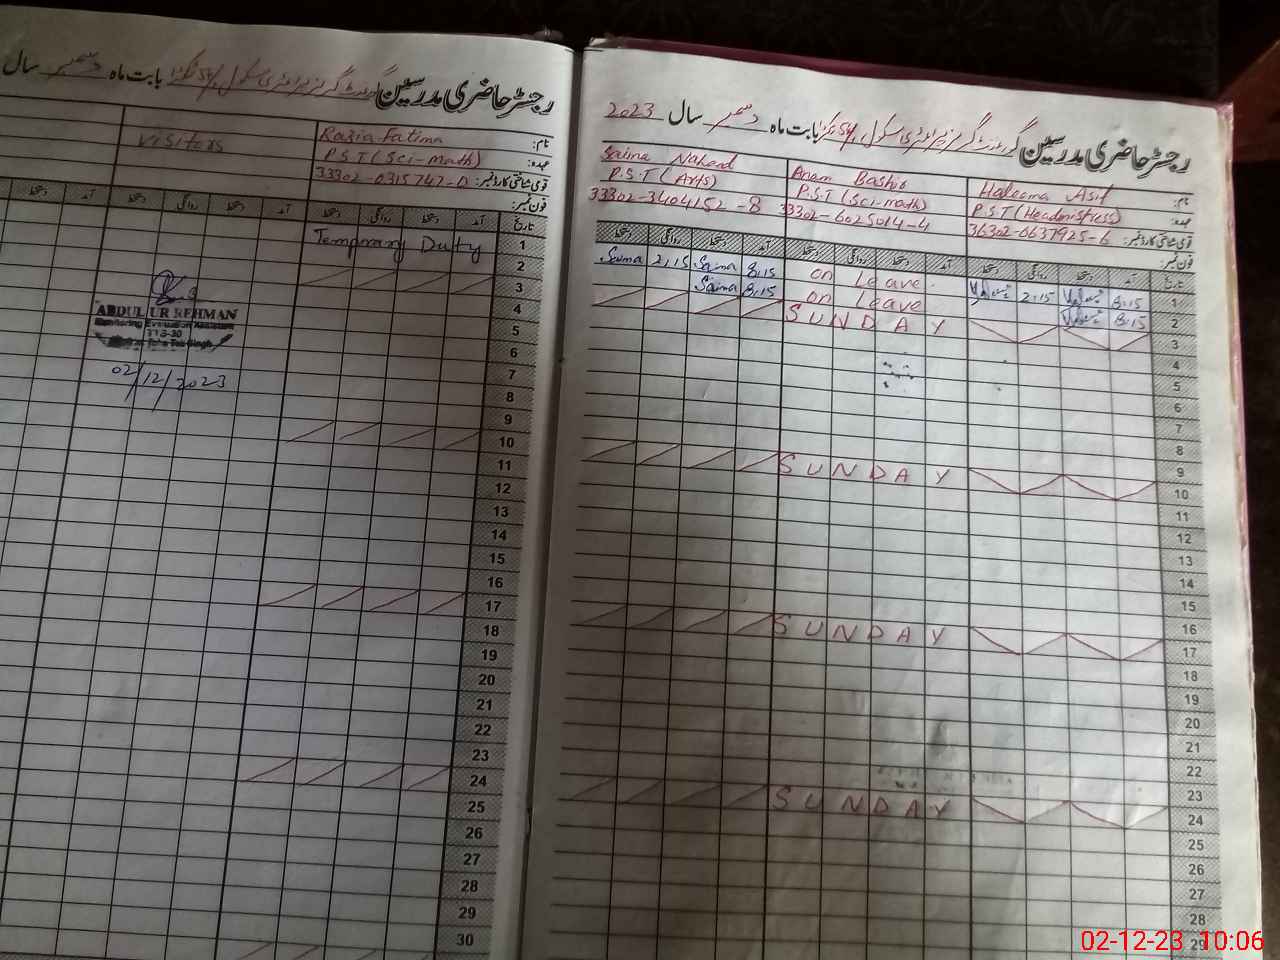 رجسٹر حاضری مدرسین گورنمنٹ گرلز پرائمری سکول بابت ماہ دسمبر سال 2023
نام: Haleema Asif Anam Bashir Saima Naheed
عہدہ: P.S.T (Headmistress) P.S.T (Sci-math) P.S.T (Arts)
قومی شناختی کارڈ نمبر: 36302-0637925-6 33302-6025014-4 33302-3404152-8
فون نمبر:
تاریخ آمد دستخط روانگی دستخط آمد دستخط روانگی دستخط آمد دستخط روانگی دستخط
1 8:15 2:15 on Leave 8:15 Saima 2:15 Saima
2 8:15 on Leave 8:15 Saima
3 SUNDAY
4
5
6
7
8
9
10 SUNDAY
11
12
13
14
15
16
17 SUNDAY
18
19
20
21
22
23
24 SUNDAY
25
26
27
28
29
رجسٹر حاضری مدرسین گورنمنٹ گرلز پرائمری سکول بابت ماہ دسمبر سال
نام: Razia Fatima visitors
عہدہ: P.S.T (Sci-math)
قومی شناختی کارڈ نمبر: 33302-0315747-0
فون نمبر:
تاریخ آمد دستخط روانگی دستخط آمد دستخط روانگی دستخط آمد دستخط
1 Temporary Duty
2
3
4
5
6
7
8
9
10
11
12
13
14
15
16
17
18
19
20
21
22
23
24
25
26
27
28
29
30
ABDUL UR REHMAN
Monitoring Evaluation Assistant
02/12/2023
02-12-23 10:06